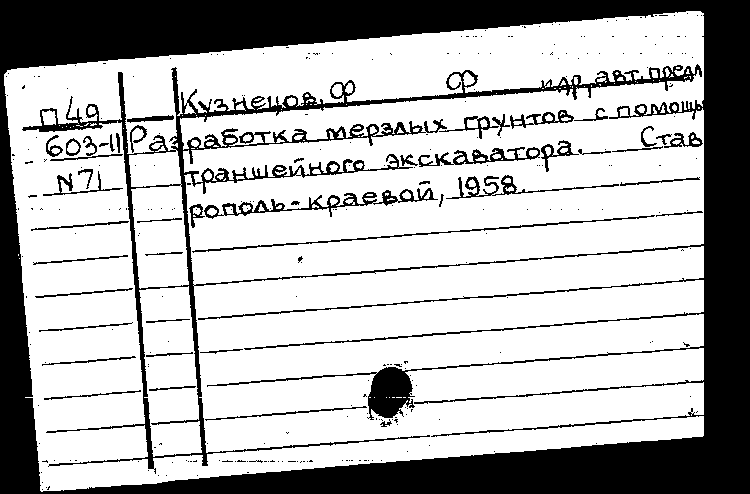 П 49 Кузнецов, Ф Ф и др, авт. предл
603-11 Разработка мерзлых грунтов с помощь
N 71 траншейного экскаватора. Став
рополь-краевой, 1958.